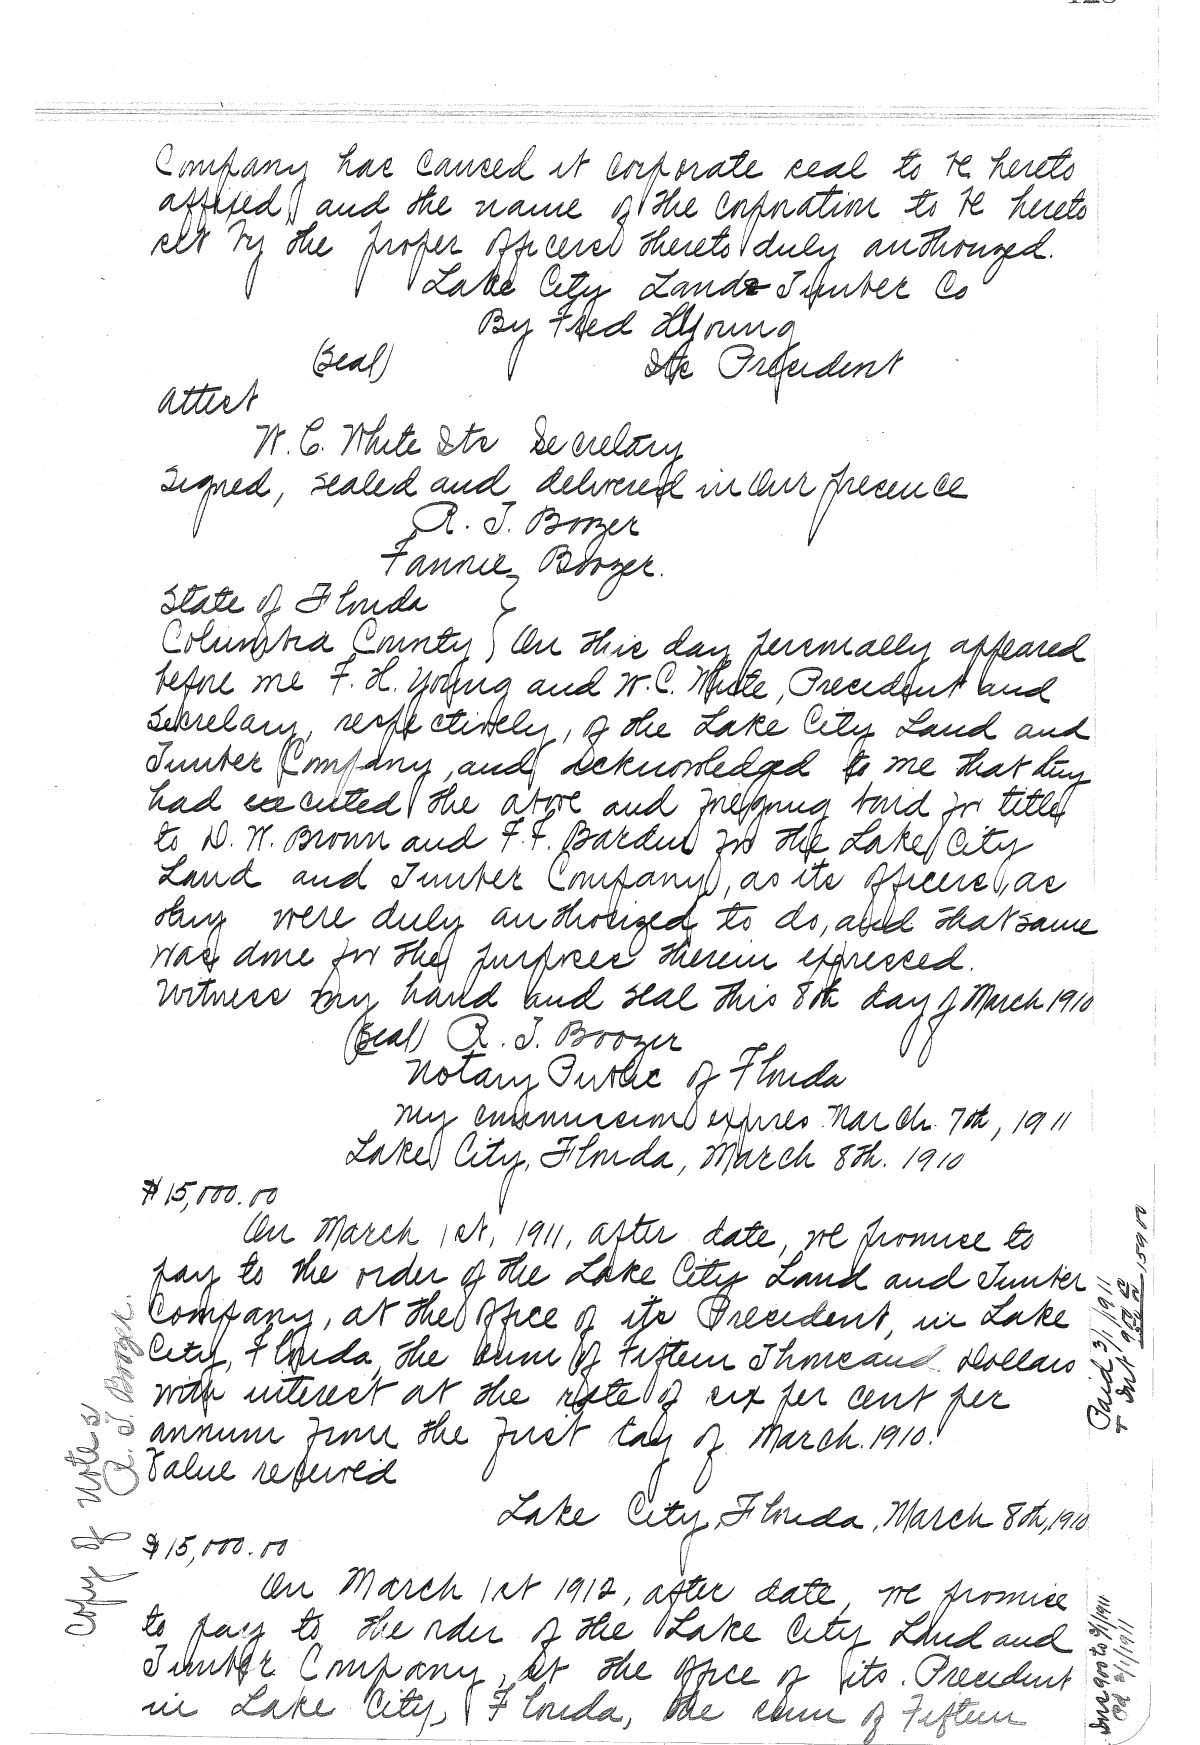 Company has caused it corporate seal to be hereto
affixed, and the name of the corporation to be hereto
set by the proper officers thereto duly authorized.
Lake City Land & Timber Co
By Fred H Young
(Seal) Its President
Attest
W. C. White Its Secretary
Signed, sealed and delivered in our presence
R. T. Boozer
Fannie Boozer.
State of Florida }
Columbia County } On this day personally appeared
before me F. H. Young and W. C. White, President and
Secretary, respectively, of the Lake City Land and
Timber Company, and acknowledged to me that they
had executed the above and foregoing bond for title
to D. W. Brown and F. F. Bardin for the Lake City
Land and Timber Company, as its officers, as
they were duly authorized to do, and that same
was done for the purposes therein expressed.
Witness my hand and seal this 8th day of March 1910
(Seal) R. T. Boozer
Notary Public of Florida
My commission expires March 7th, 1911
Lake City, Florida, March 8th. 1910
$15,000.00
On March 1st, 1911, after date, we promise to
pay to the order of the Lake City Land and Timber
Company, at the office of its President, in Lake
City, Florida, the sum of Fifteen Thousand Dollars
with interest at the rate of six per cent per
annum from the first day of March. 1910.
Value received
Lake City, Florida, March 8th, 1910
$15,000.00
On March 1st 1912, after date, we promise
to pay to the order of the Lake City Land and
Timber Company, at the office of its President
in Lake City, Florida, the sum of Fifteen
Copy of Notes
R. T. Boozer.
Paid 3/1/1911
Int 900 to 3/1/1911
Pd 3/1/1911